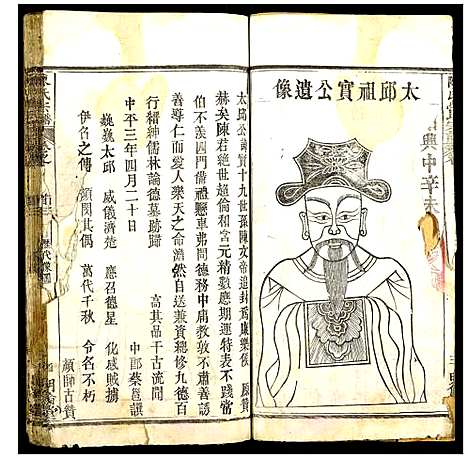 太邱祖寔公遺像
太邱公諱寔十九世孫陳文帝追封為廉樂侯 原贊
赫矣陳君絕世超倫和含元精數應期運特表不踐當
伯不羨四門備禮懸車弗問德務中庸教敦不肅善誘
善導仁而愛人樂天之命澹然自送兼資總修九德百
行摺紳儒林論德墓跡歸 高其品于古流聞
中平三年四月二十日 中郎蔡邕譔
巍巍太邱 威儀濟楚 應召德星 化感賊掳
伊名之傳 額閔其偶 萬代千秋 令名不朽
顏師古贊
陳氏宗譜
歷代像圖